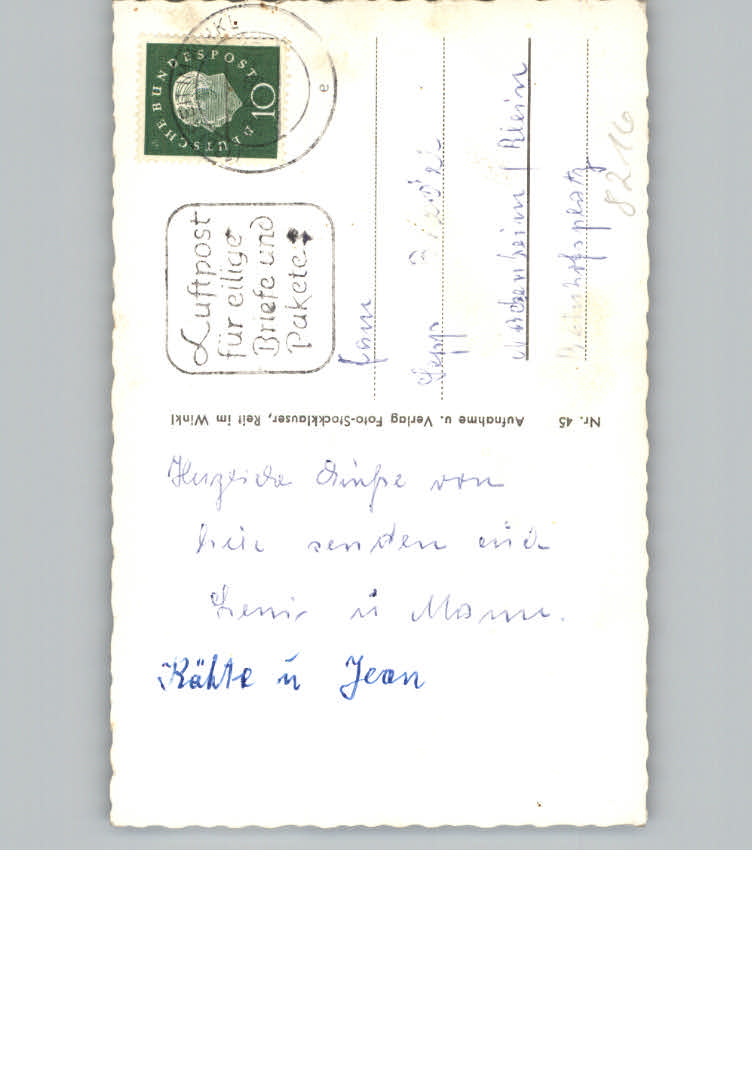 DEUTSCHE BUNDESPOST
10
e
Luftpost
für eilige
Briefe und
Pakete
Fam
Sepp
Wachenheim / Rhein
Bahnhofsplatz
8216
Nr. 45 Aufnahme u. Verlag Foto-Stockklauser, Reit im Winkl
Herzliche Grüße von
hier senden euch
Leni u Mann.
Kähte u Jean